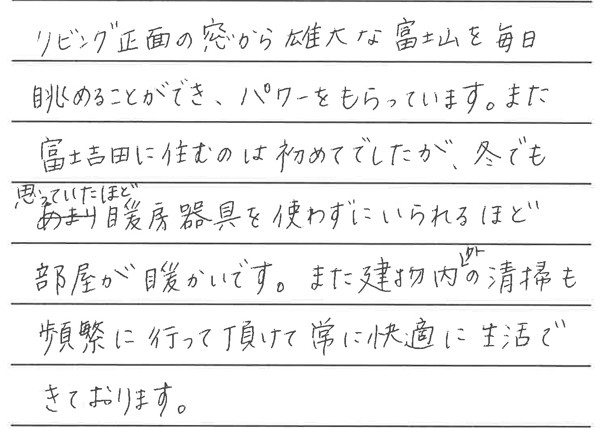 リビング正面の窓から雄大な富士山を毎日
眺めることができ、パワーをもらっています。また
富士吉田に住むのは初めてでしたが、冬でも
思っていたほど
あまり暖房器具を使わずにいられるほど
部屋が暖かいです。また建物内外の清掃も
頻繁に行って頂けて常に快適に生活で
きております。